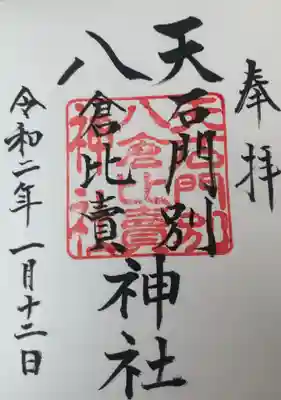 奉拝
天石門別
八倉比賣
神社
令和二年一月十二日
天石門別
八倉比賣
神社